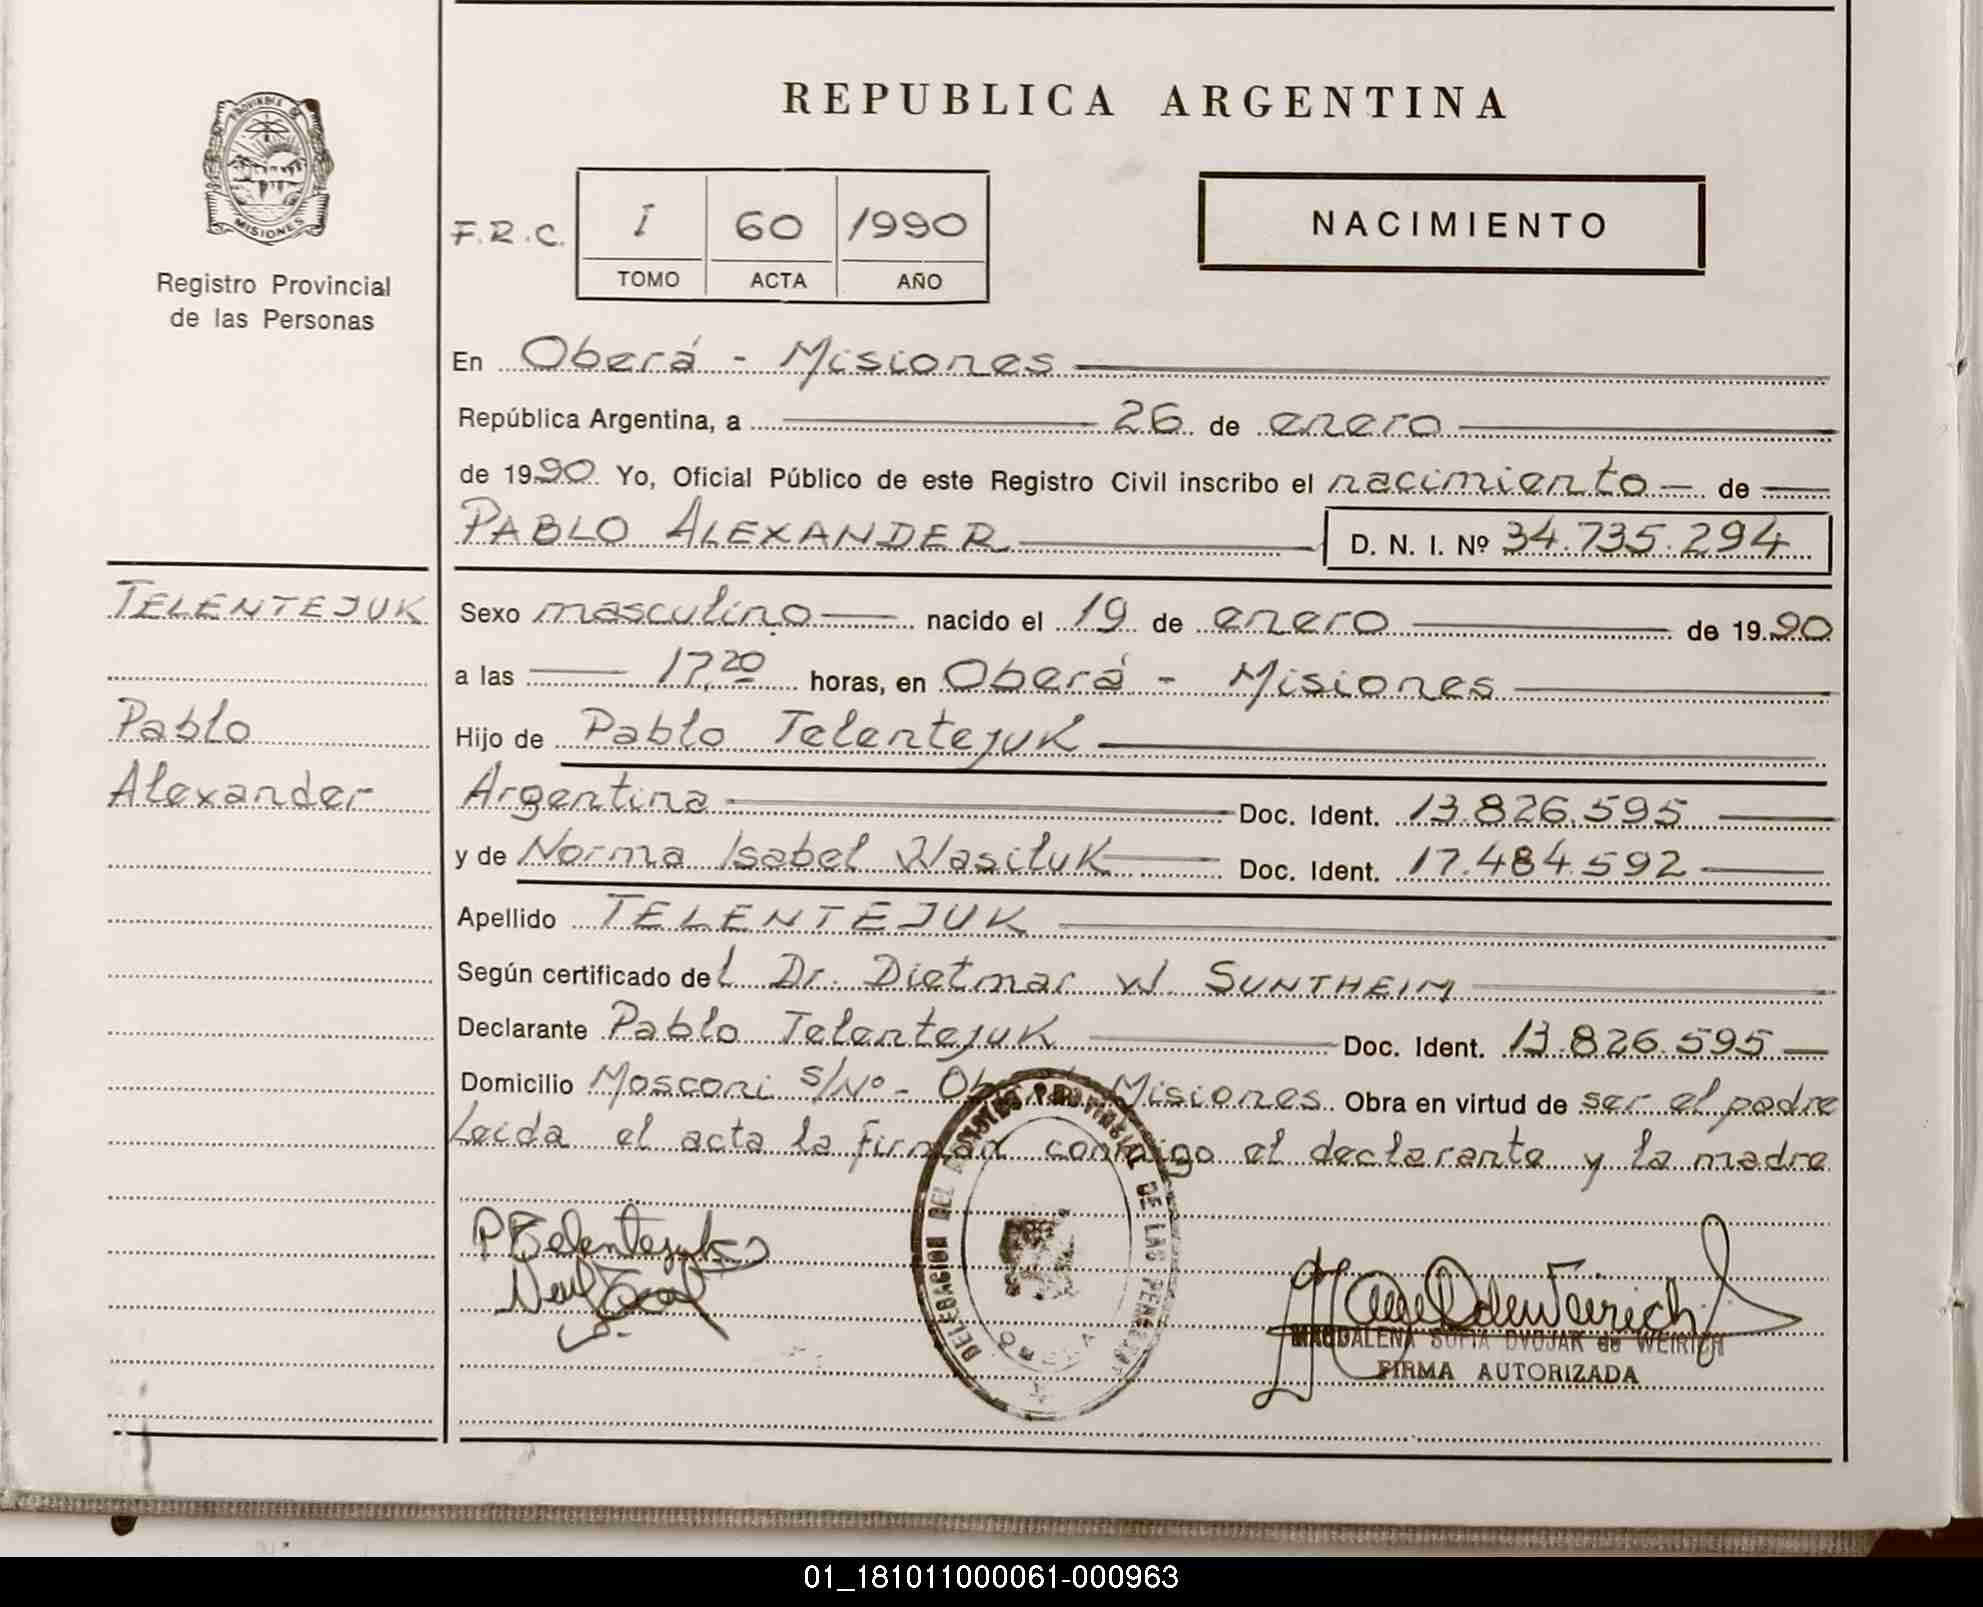 REPUBLICA ARGENTINA
PROVINCIA DE
MISIONES
Registro Provincial
de las Personas
F.R.C. I 60 1990
TOMO ACTA AÑO
NACIMIENTO
En Oberá - Misiones
República Argentina, a 26 de enero
de 1990. Yo, Oficial Público de este Registro Civil inscribo el nacimiento de
PABLO ALEXANDER D. N. I. Nº 34.735.294
TELENTEJUK
Pablo
Alexander
Sexo masculino nacido el 19 de enero de 1990
a las 17,20 horas, en Oberá - Misiones
Hijo de Pablo Telentejuk
Argentina Doc. Ident. 13.826.595
y de Norma Isabel Wasiluk Doc. Ident. 17.484.592
Apellido TELENTEJUK
Según certificado del Dr. Dietmar W. SUNTHEIM
Declarante Pablo Telentejuk Doc. Ident. 13.826.595
Domicilio Mosconi s/Nº - Oberá Misiones Obra en virtud de ser el padre
Leida el acta la firman conmigo el declarante y la madre
P Telentejuk
DELEGACION DEL REGISTRO PROVINCIAL DE LAS PERSONAS
OBERA
MAGDALENA SOFIA DVOJAK de WEIRICH
FIRMA AUTORIZADA
01_181011000061-000963